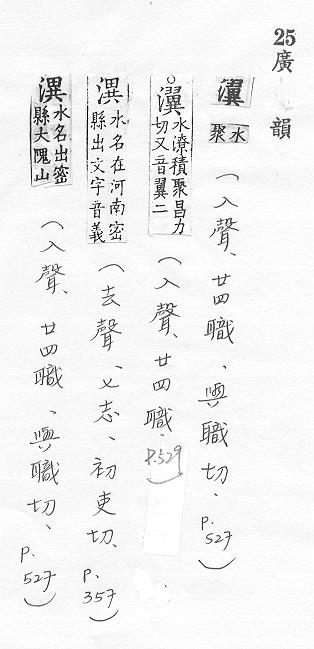 25廣韻
瀷 水聚 （入聲、廿四職、與職切、P.527）
○瀷 水潦積聚昌力切又音翼二 （入聲、廿四職、P.529）
潩 水名在河南密縣出文字音義 （去聲、七志、初吏切、P.357）
潩 水名出密縣大隗山 （入聲、廿四職、與職切、P.527）